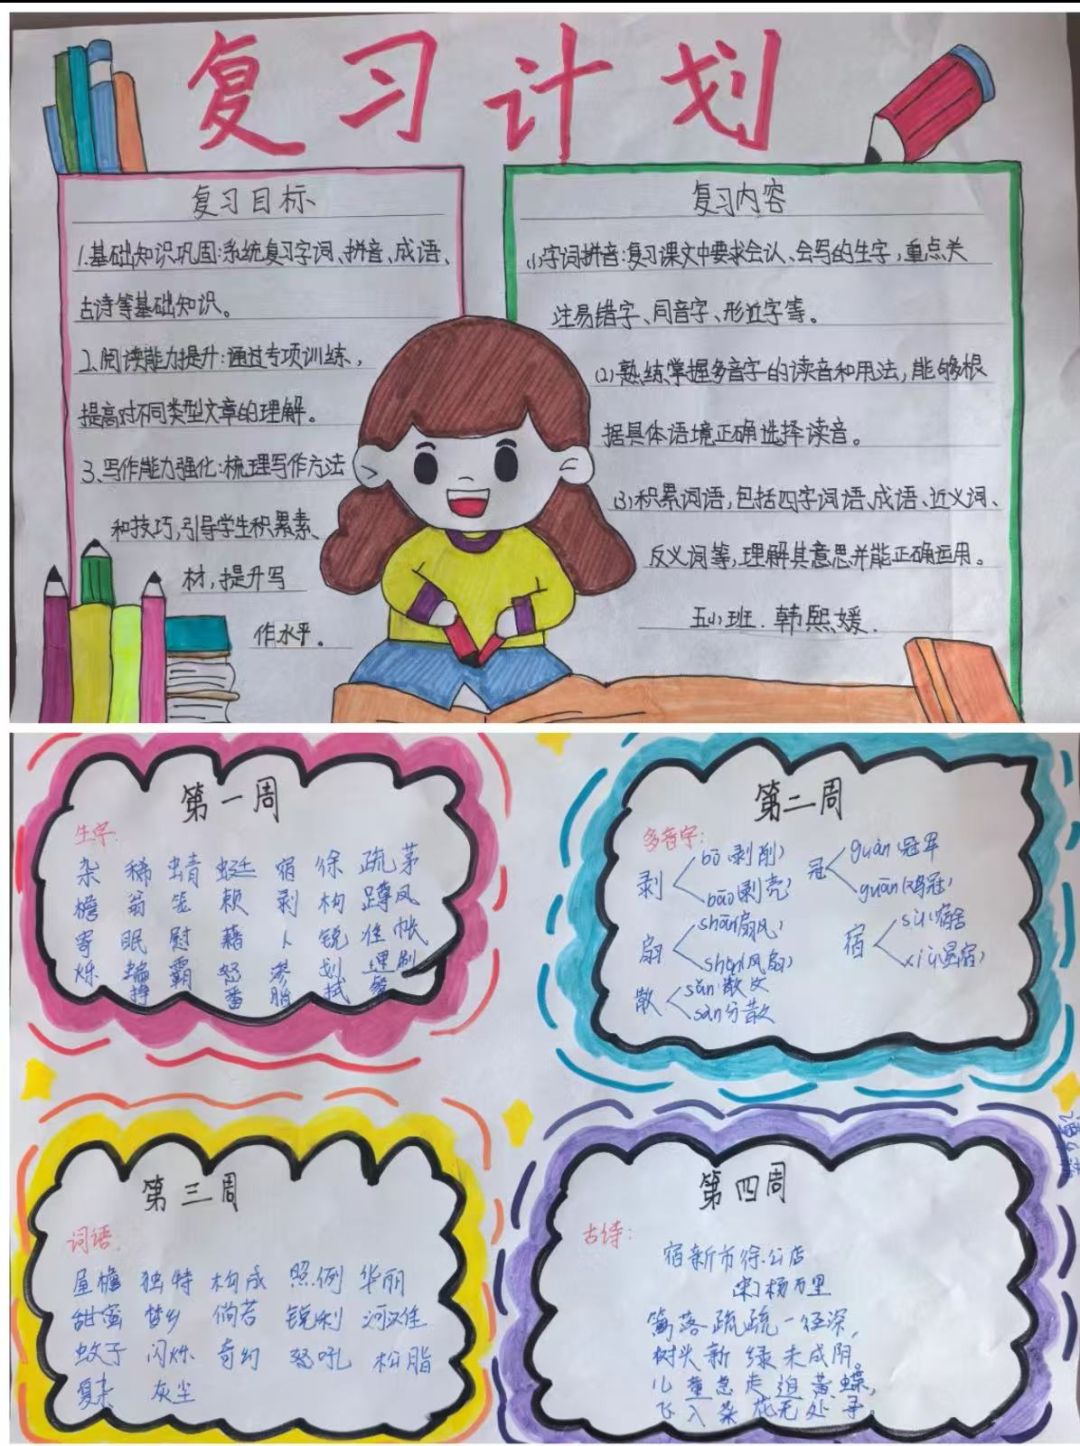 复习计划
复习目标
1.基础知识巩固:系统复习字词、拼音、成语、
古诗等基础知识。
2.阅读能力提升:通过专项训练,
提高对不同类型文章的理解。
3.写作能力强化:梳理写作方法
和技巧,引导学生积累素
材,提升写
作水平。
复习内容
(1)字词拼音:复习课文中要求会认、会写的生字,重点关
注易错字、同音字、形近字等。
(2)熟练掌握多音字的读音和用法,能够根
据具体语境正确选择读音。
(3)积累词语,包括四字词语、成语、近义词、
反义词等,理解其意思并能正确运用。
韩熙媛.
第一周
生字:
杂 稀 蜻 蜓 宿 徐 疏 茅
檐 翁 赖 剥 构 蹲 风
寄 眠 慰 藉 卜 锐 帐
烁 霸 怒 渗 划 刷
番 胎 拭
第二周
多音字:
剥 bō(剥削)
bāo(剥壳)
冠 guàn(冠军
guān(鸡冠)
扇 shān(扇风)
shàn(风扇)
宿 sù(宿舍
xiù(星宿)
散 sǎn(散文
sàn分散
第三周
词语:
屋檐 独特 构成 照例 华丽
甜蜜 梦乡 倘若 锐利
蚊子 闪烁 奇幻 怒吼 松脂
灰尘
第四周
古诗:
宿新市徐公店
宋杨万里
篱落疏疏一径深,
树头新绿未成阴。
儿童急走追黄蝶,
飞入菜花无处寻。